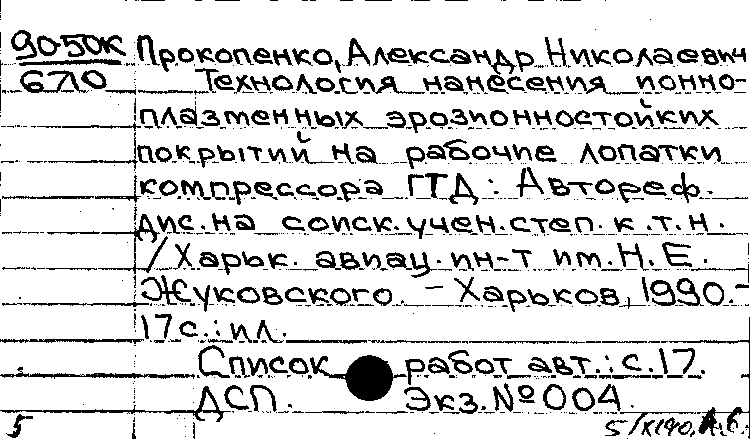 90-50К Прокопенко, Александр Николаевич
6710 Технология нанесения ионно-
плазменных эрозионностойких
покрытий на рабочие лопатки
компрессора ГТД: Автореф.
дис. на соиск. учен. степ. к.т.н.
/Харьк. авиац. ин-т им. Н.Е.
Жуковского. – Харьков, 1990.-
17с.: ил.
Список работ авт.: с.17.
ДСП. Экз. № 004.
5